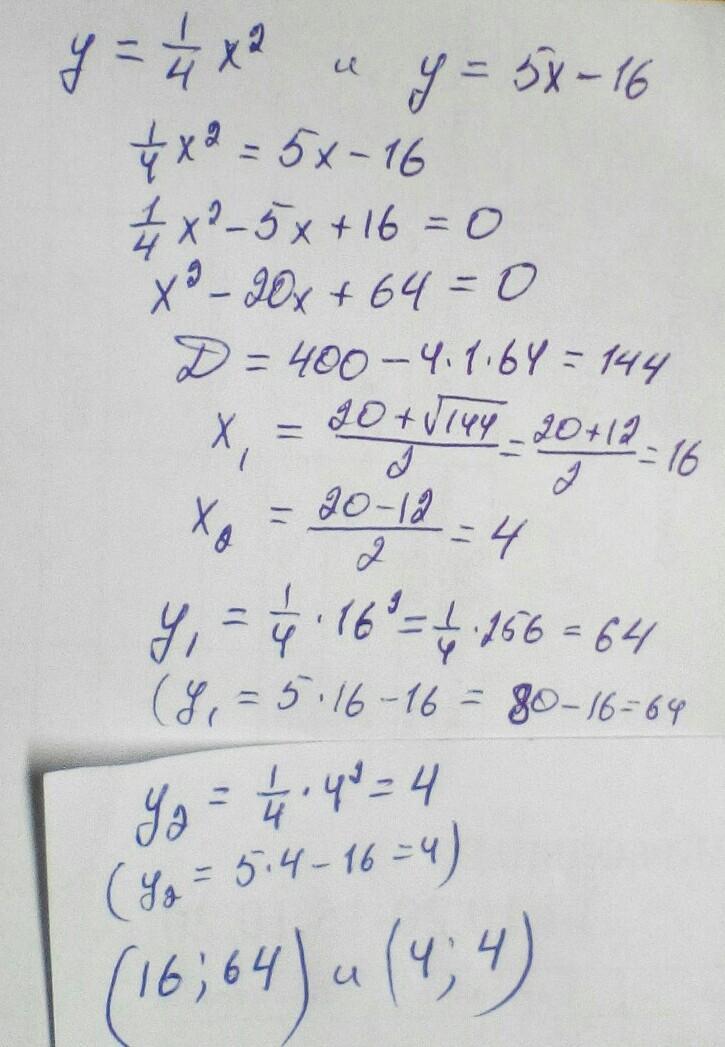 y = 1/4 x² и y = 5x - 16
1/4 x² = 5x - 16
1/4 x² - 5x + 16 = 0
x² - 20x + 64 = 0
D = 400 - 4·1·64 = 144
x₁ = (20 + √144)/2 = (20+12)/2 = 16
x₂ = (20-12)/2 = 4
y₁ = 1/4 · 16² = 1/4 · 256 = 64
(y₁ = 5·16 - 16 = 80 - 16 = 64
y₂ = 1/4 · 4² = 4
(y₂ = 5·4 - 16 = 4)
(16; 64) и (4; 4)